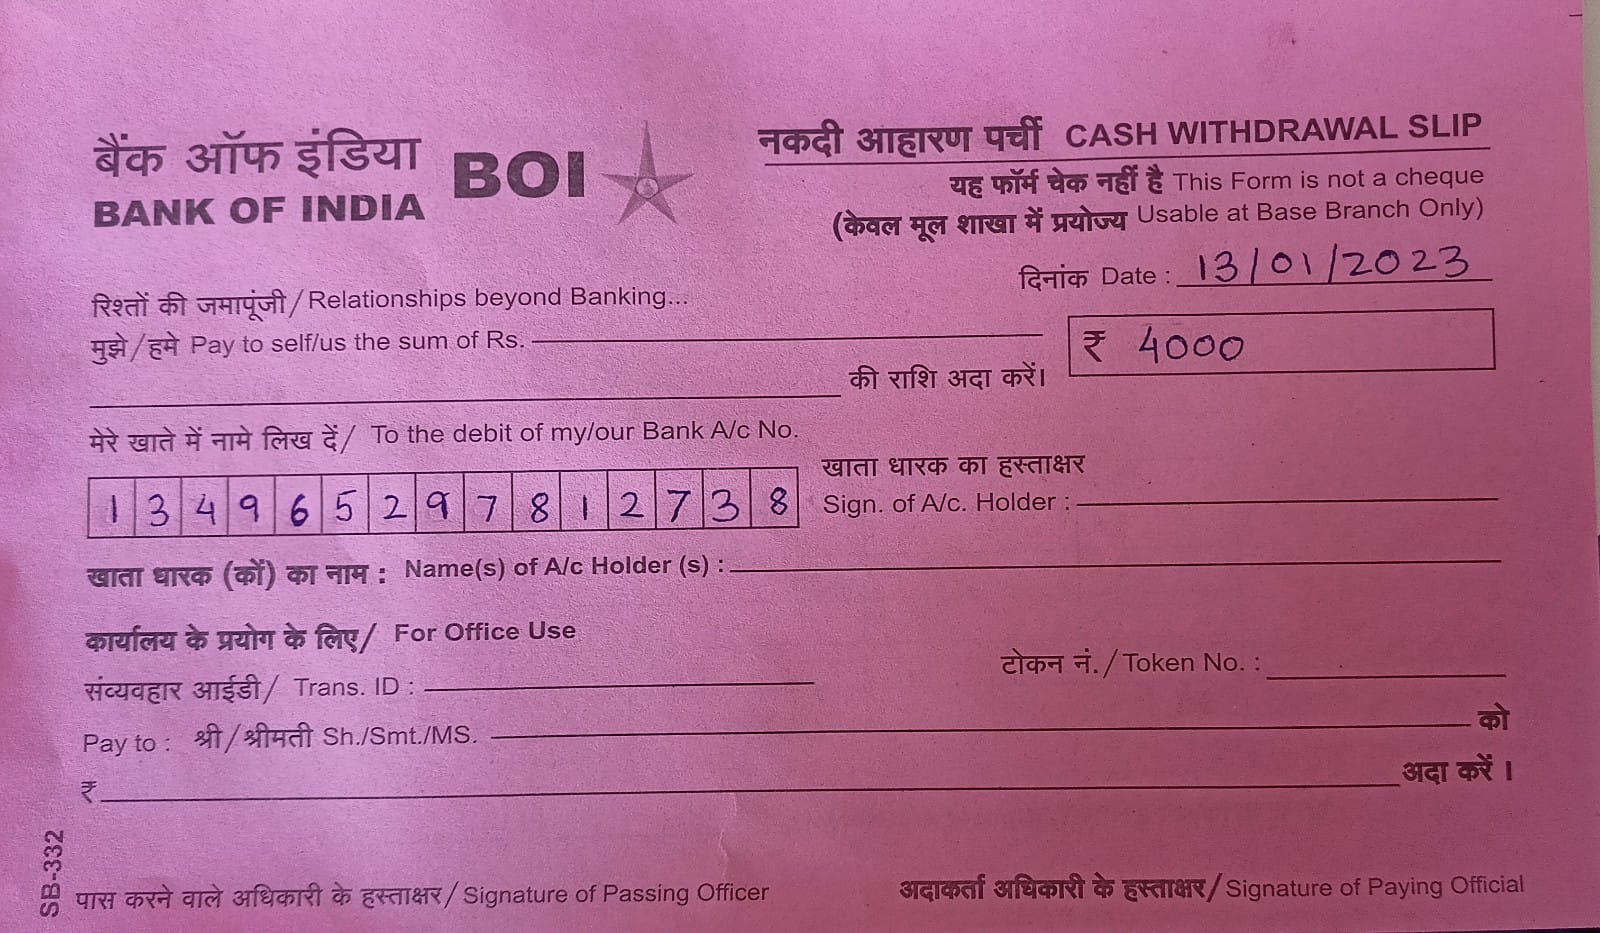 बैंक ऑफ इंडिया
BANK OF INDIA BOI
नकदी आहारण पर्ची CASH WITHDRAWAL SLIP
यह फॉर्म चेक नहीं है This Form is not a cheque
(केवल मूल शाखा में प्रयोज्य Usable at Base Branch Only)
दिनांक Date : 13/01/2023
रिश्तों की जमापूंजी/Relationships beyond Banking...
मुझे/हमे Pay to self/us the sum of Rs.
₹ 4000
की राशि अदा करें।
मेरे खाते में नामे लिख दें/ To the debit of my/our Bank A/c No.
134965297812738
खाता धारक का हस्ताक्षर
Sign. of A/c. Holder :
खाता धारक (कों) का नाम : Name(s) of A/c Holder (s) :
कार्यालय के प्रयोग के लिए/ For Office Use
संव्यवहार आईडी/ Trans. ID :
टोकन नं./Token No. :
Pay to : श्री/श्रीमती Sh./Smt./MS. को
₹ अदा करें ।
SB-332
पास करने वाले अधिकारी के हस्ताक्षर/Signature of Passing Officer
अदाकर्ता अधिकारी के हस्ताक्षर/Signature of Paying Official